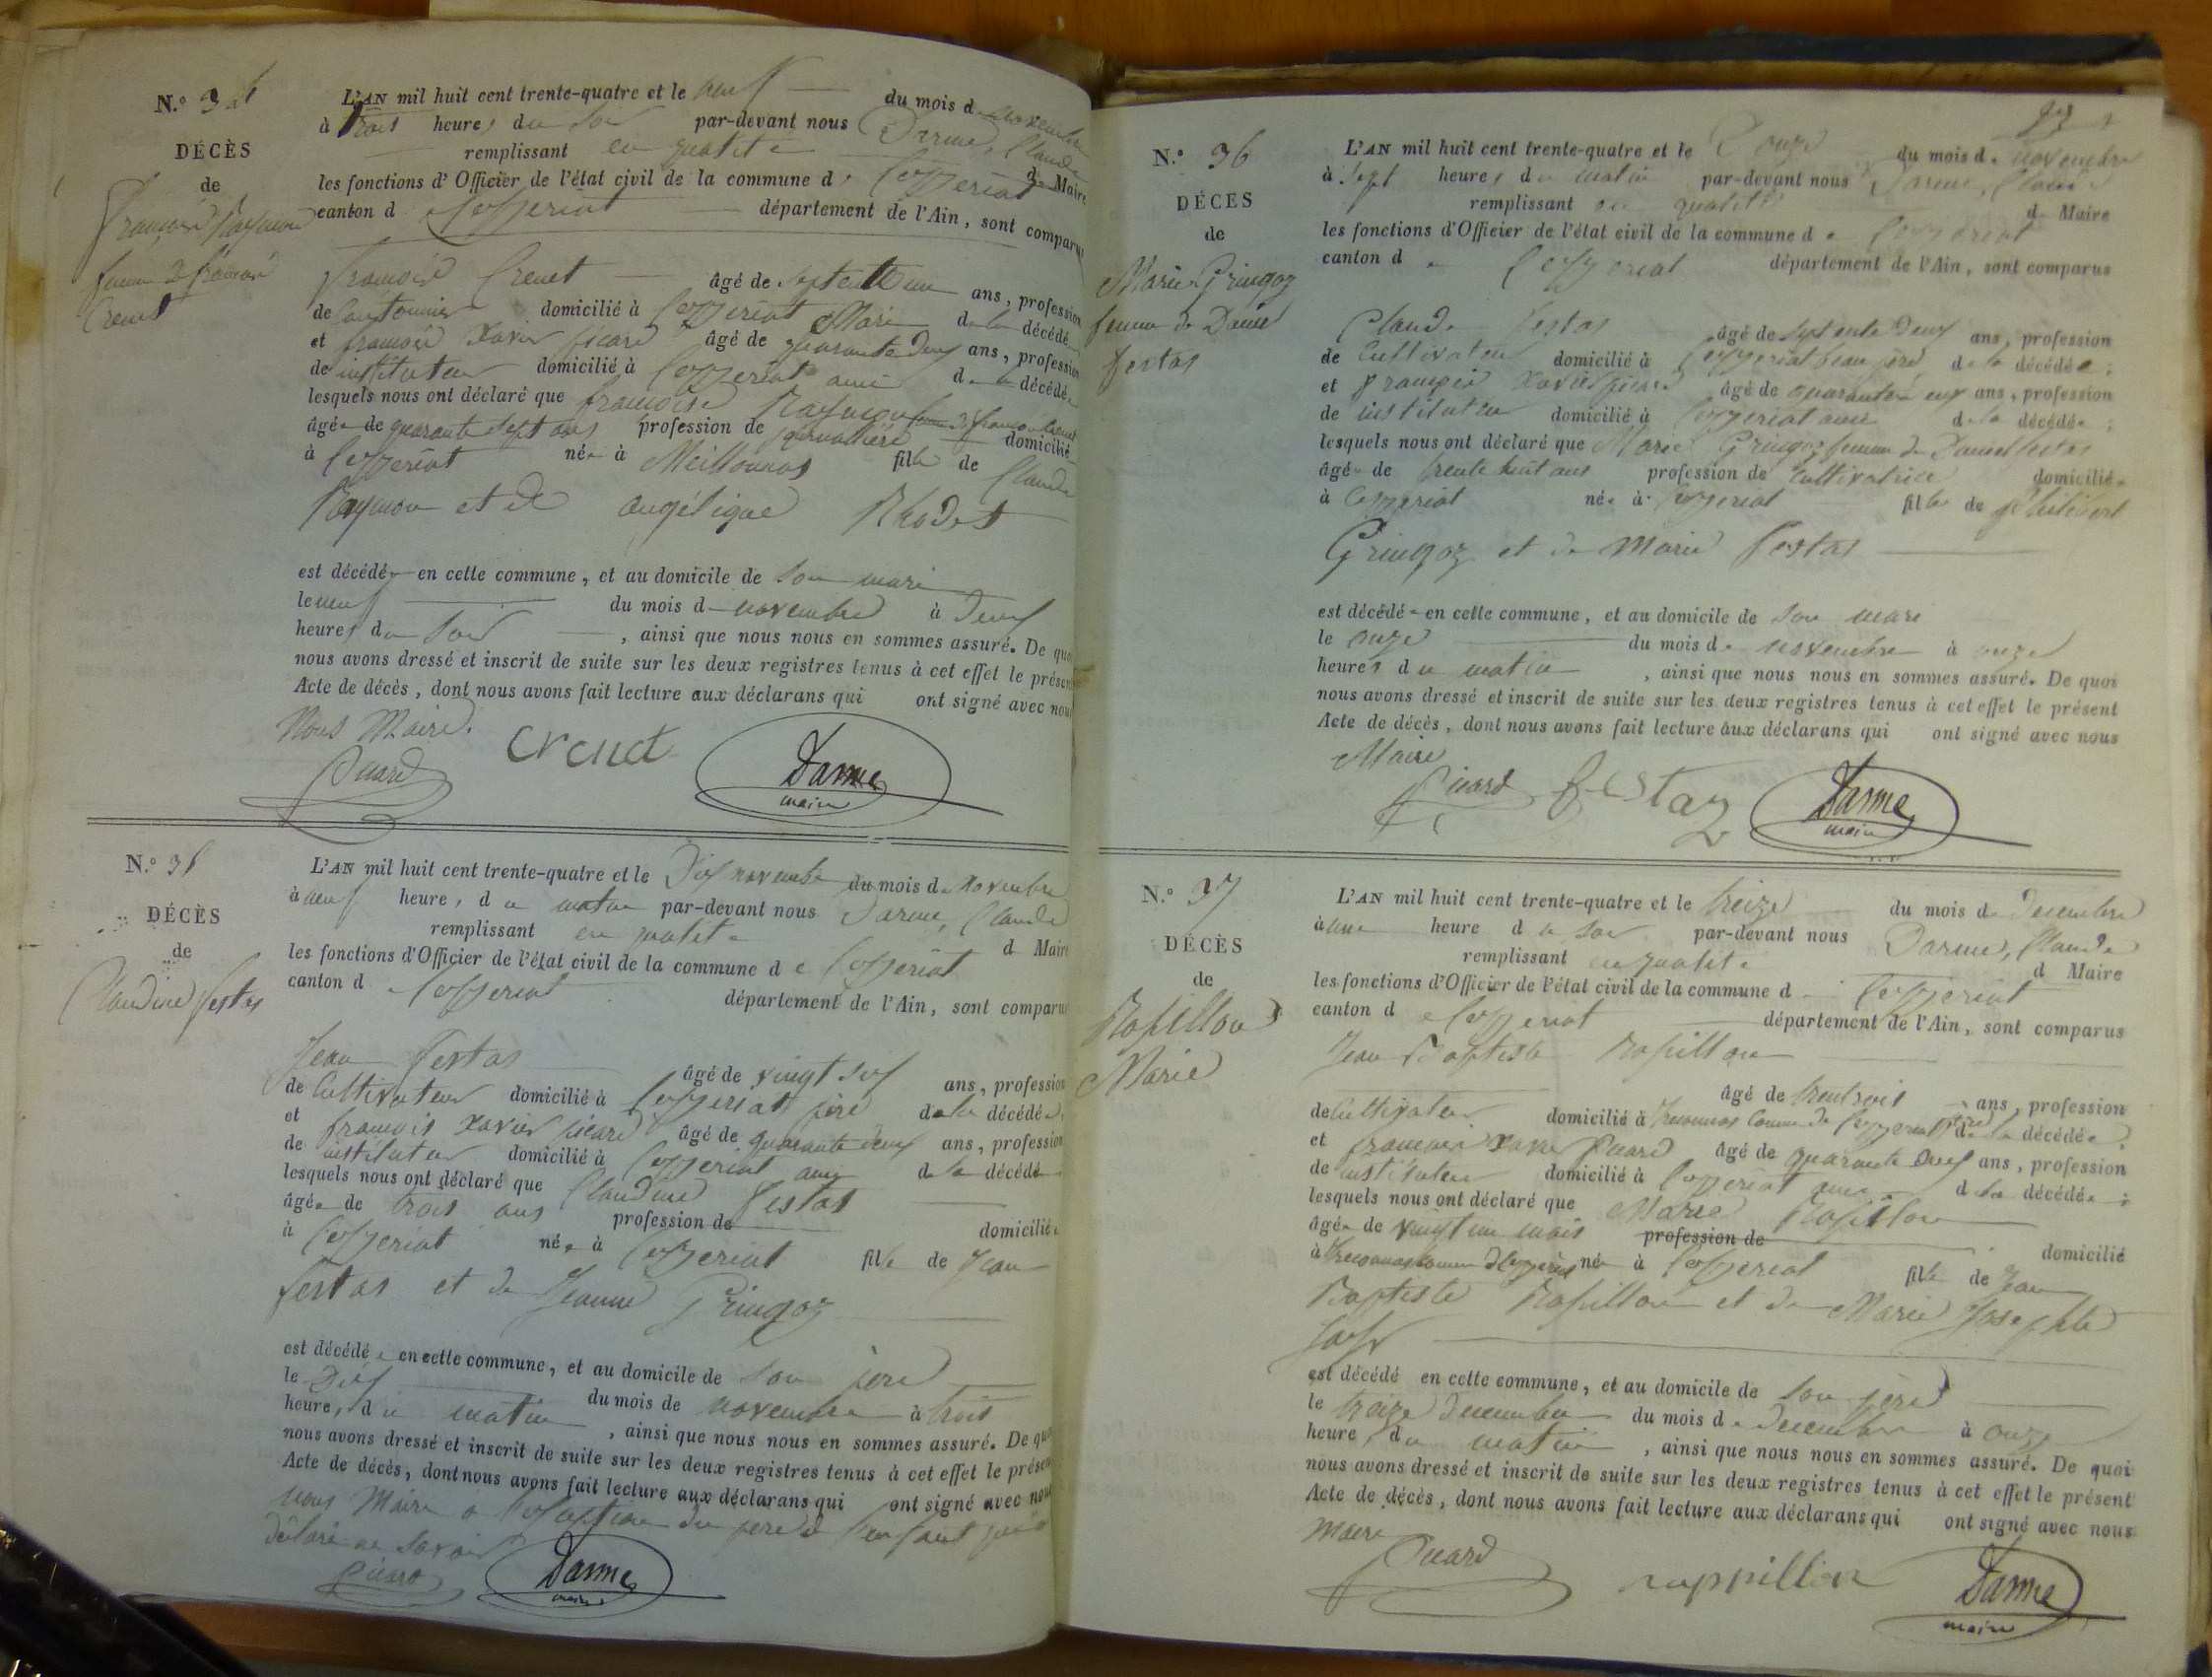 N.° 34
DÉCÈS
de
Françoise Raymon
femme de françois
Crenet
L'AN mil huit cent trente-quatre et le neuf du mois de novembre
à trois heures du soir par-devant nous Darme, Claude
remplissant en qualité de Maire
les fonctions d'Officier de l'état civil de la commune de Ceyzeriat
canton de Ceyzeriat département de l'Ain, sont comparus
françois Crenet âgé de septante un ans, profession
de Cantonnier domicilié à Ceyzeriat Mari de la décédée
et françois Xavier picard âgé de quarante deux ans, profession
de instituteur domicilié à Ceyzeriat ami de la décédée
lesquels nous ont déclaré que françoise Raymon femme de françois Crenet
âgée de quarante sept ans profession de journalliere domicilié
à Ceyzeriat née à Meillonnas fille de Claude
Raymon et de angélique Rhodet
est décédée en cette commune, et au domicile de son mari
le neuf du mois de novembre à deux
heures du soir, ainsi que nous nous en sommes assuré. De quoi
nous avons dressé et inscrit de suite sur les deux registres tenus à cet effet le présent
Acte de décès, dont nous avons fait lecture aux déclarans qui ont signé avec nous
Nous Maire.
Picard crenet Darme
maire
N.° 35
DÉCÈS
de
Claudine festas
L'AN mil huit cent trente-quatre et le Dix novembre du mois de Novembre
à neuf heure, du matin par-devant nous Darme, Claude
remplissant en qualité d Maire
les fonctions d'Officier de l'état civil de la commune de Ceyzeriat
canton de Ceyzeriat département de l'Ain, sont comparus
Jean festas âgé de vingt six ans, profession
de Cultivateur domicilié à Ceyzeriat père de la décédée
et françois Xavier picard âgé de quarante deux ans, profession
de instituteur domicilié à Ceyzeriat ami de la décédée
lesquels nous ont déclaré que Claudine festas
âgée de trois ans profession de domicilié
à Ceyzeriat née à Ceyzeriat fille de Jean
festas et de Jeanne Gringoz
est décédée en cette commune, et au domicile de son père
le Dix du mois de novembre à trois
heure, du matin, ainsi que nous nous en sommes assuré. De quoi
nous avons dressé et inscrit de suite sur les deux registres tenus à cet effet le présent
Acte de décès, dont nous avons fait lecture aux déclarans qui ont signé avec nous
nous Maire a l'exception du père de l'enfant qui a
déclaré ne savoir
Picard Darme
maire
N.° 36
DÉCÈS
de
Marie Gringoz
femme de Daniel
festas
L'AN mil huit cent trente-quatre et le onze du mois de novembre
à sept heures du matin par-devant nous Darme, Claude
remplissant en qualité de Maire
les fonctions d'Officier de l'état civil de la commune de Ceyzeriat
canton de Ceyzeriat département de l'Ain, sont comparus
Claude festas âgé de septente deux ans, profession
de Cultivateur domicilié à Ceyzeriat beau père de la décédée;
et françois Xavier picard âgé de quarante deux ans, profession
de instituteur domicilié à Ceyzeriat ami de la décédée;
lesquels nous ont déclaré que Marie Gringoz femme de Daniel festas
âgée de trente huit ans profession de Cultivatrice domiciliée
à Ceyzeriat née à Ceyzeriat fille de philibert
Gringoz et de Marie festas
est décédée en cette commune, et au domicile de son mari
le onze du mois de novembre à onze
heures du matin, ainsi que nous nous en sommes assuré. De quoi
nous avons dressé et inscrit de suite sur les deux registres tenus à cet effet le présent
Acte de décès, dont nous avons fait lecture aux déclarans qui ont signé avec nous
Maire
Picard festaz Darme
maire
N.° 37
DÉCÈS
de
Rapillon
Marie
L'AN mil huit cent trente-quatre et le treize du mois de Decembre
à une heure du soir par-devant nous Darme, Claude
remplissant en qualité d Maire
les fonctions d'Officier de l'état civil de la commune d Ceyzeriat
canton de Ceyzeriat département de l'Ain, sont comparus
Jean Baptiste Rapillon
âgé de trentrois ans, profession
de Cultivateur domicilié à Comme de Ceyzeriat père de la décédée;
et françois Xavier Picard âgé de quarante deux ans, profession
de instituteur domicilié à Ceyzeriat ami de la décédée;
lesquels nous ont déclaré que Marie Rapillon
âgée de vingt un mois profession de domicilié
à née à Ceyzeriat fille de Jean
Baptiste Rapillon et de Marie Josephte
est décédé en cette commune, et au domicile de son père
le treize Decembre du mois de Decembre à onze
heure, du matin, ainsi que nous nous en sommes assuré. De quoi
nous avons dressé et inscrit de suite sur les deux registres tenus à cet effet le présent
Acte de décès, dont nous avons fait lecture aux déclarans qui ont signé avec nous
Maire
Picard rappillon Darme
maire